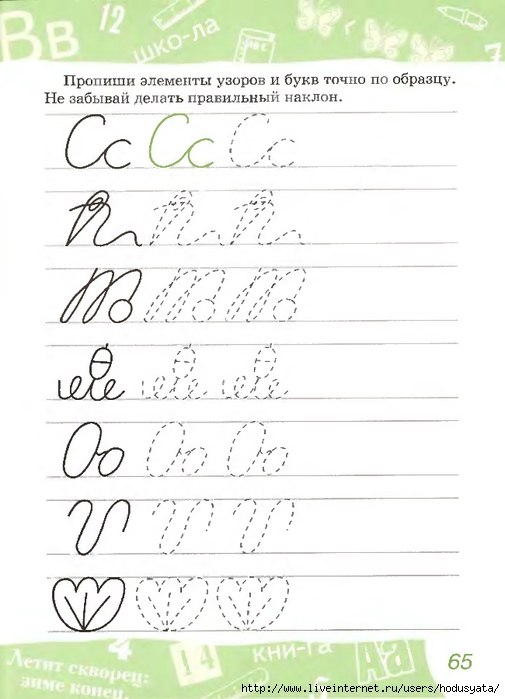 Вв 12 7
шко-ла
АВС
Пропиши элементы узоров и букв точно по образцу.
Не забывай делать правильный наклон.
Сс Сс Сс
Оо Оо Оо
4 14 кни-га Аа
Летит скворец:
зиме конец.
65
http://www.liveinternet.ru/users/hodusyata/